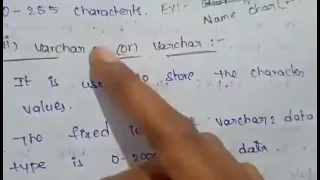 0-255 characters. Ex:-
Name char(
varchar (or) varchar :-
It is to store the character
values.
The fixed varchar2 data
type is 0-200 data.